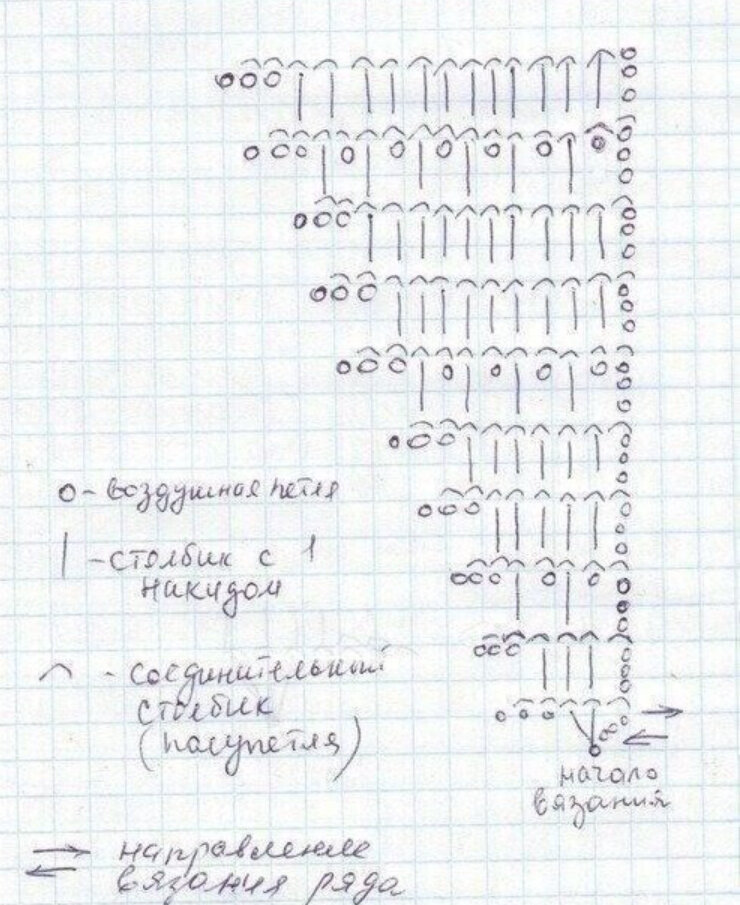 o - воздушная петля
| - столбик с 1
накидом
⌒ - соединительный
столбик
(полупетля)
начало
вязания
направление
вязания ряда